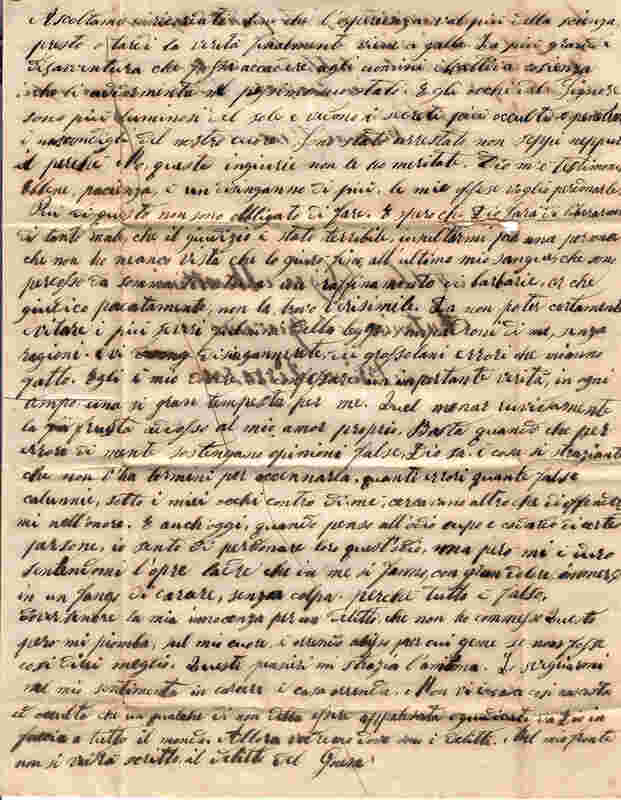 Ascoltamo e ricordati bene che l'esperienza val piu della scienza
presto o tardi la verità finalmente viene a galla. La piu grande
disavventura che possa accadere agli uomini è la cattiva coscienza
Egli occhi del Signore
sono piu luminosi del sole e vedono i secreti piu occulti e penetra
i nascondigli del nostro cuore. Sono stato arrestato non seppi neppur
il perche No, queste ingiurie non le ho meritate. Dio m'è testimone
Ebbene, pacienza, è un disinganno di piu. le mie offese voglio perdonarle.
Piu di questo non sono obbligato di fare. E spero che Dio sarà
di tanto male, che il giudizio è stato terribile, per una persona
che non ho manco vista che lo giuro fino all'ultimo mio sangue, che sono
percosso da raffinamento di barbarie, or che
giudico pacatamente, non la trovo verisimile. La non poter certamente
evitare i piu severi della legge di me, senza
ragioni. E vi disingannerete, di grossolani errori che
gatto. Egli è mio dovere confessare un'importante verità, in ogni
tempo una si grave tempesta per me. Quel menar ruvidamente
la frusta addosso al mio amor proprio. Basta quando che per
errore di mente sostengano opinioni false, Dio sa. è cosa si straziante
che non v'ha termini per accennarla. quanti errori quante false
calunnie, sotto i miei occhi contro di me, cercavano altro che di offender
mi nell'onore. E anch'oggi, quando penso all'odio cupo e codardo di certe
persone, io sento di perdonare loro quest'odio, ma pero mi è duro
sentendomi l'opre ladre che di me si fanno, con gran dolore immerso
in un fango di carcere, senza colpa perche tutto è falso,
dover senore la mia innocenza per un delitto, che non ho commesso Questo
pero mi piomba, sul mio cuore, è orrendo abisso per cui geme se non fosse
cosi direi meglio. Questi pensieri mi strazia l'anima. I
nel mio sentimento in carcere è cosa orrenda. Non vi è cosa cosi nascosta
ed occulta che un qualche di non debba essere appalesata e giudicati da Dio in
faccia a tutto il mondo. Allora vedremo dove sono i delitti. Nel mio fronte
non si vedrà scritto il delitto del